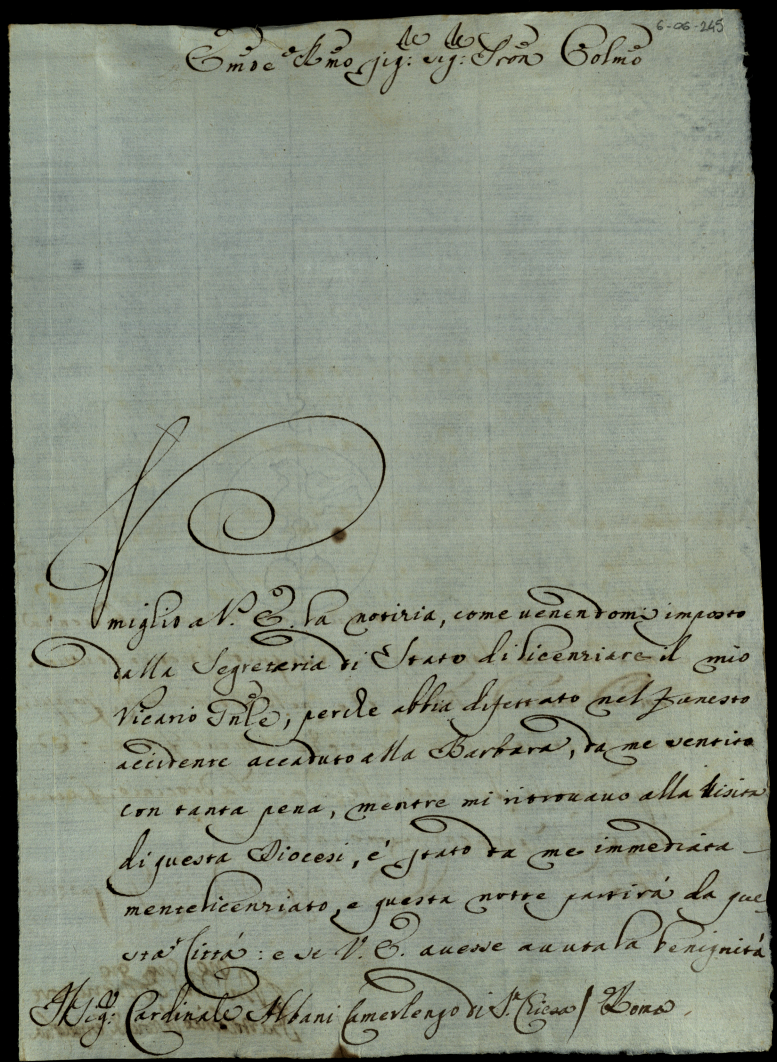 6-06-245
Emo e Rmo Sig: Sig: Pron Colmo
Umiglio a V. E. la notizia, come venendomi imposto
dalla Segreteria di Stato di licenziare il mio
Vicario Gnle, perche abbia difettato nel funesto
accidente accaduto alla Barbara, da me sentito
con tanta pena, mentre mi ritrovavo alla Visita
di questa Diocesi, é stato da me immediata-
mente licenziato, e questa notte partirá da que-
sta Cittá: e se V. E. avesse avuta la benignitá
Il Sig: Cardinale Albani Camerlengo di Sa Chiesa / Roma.